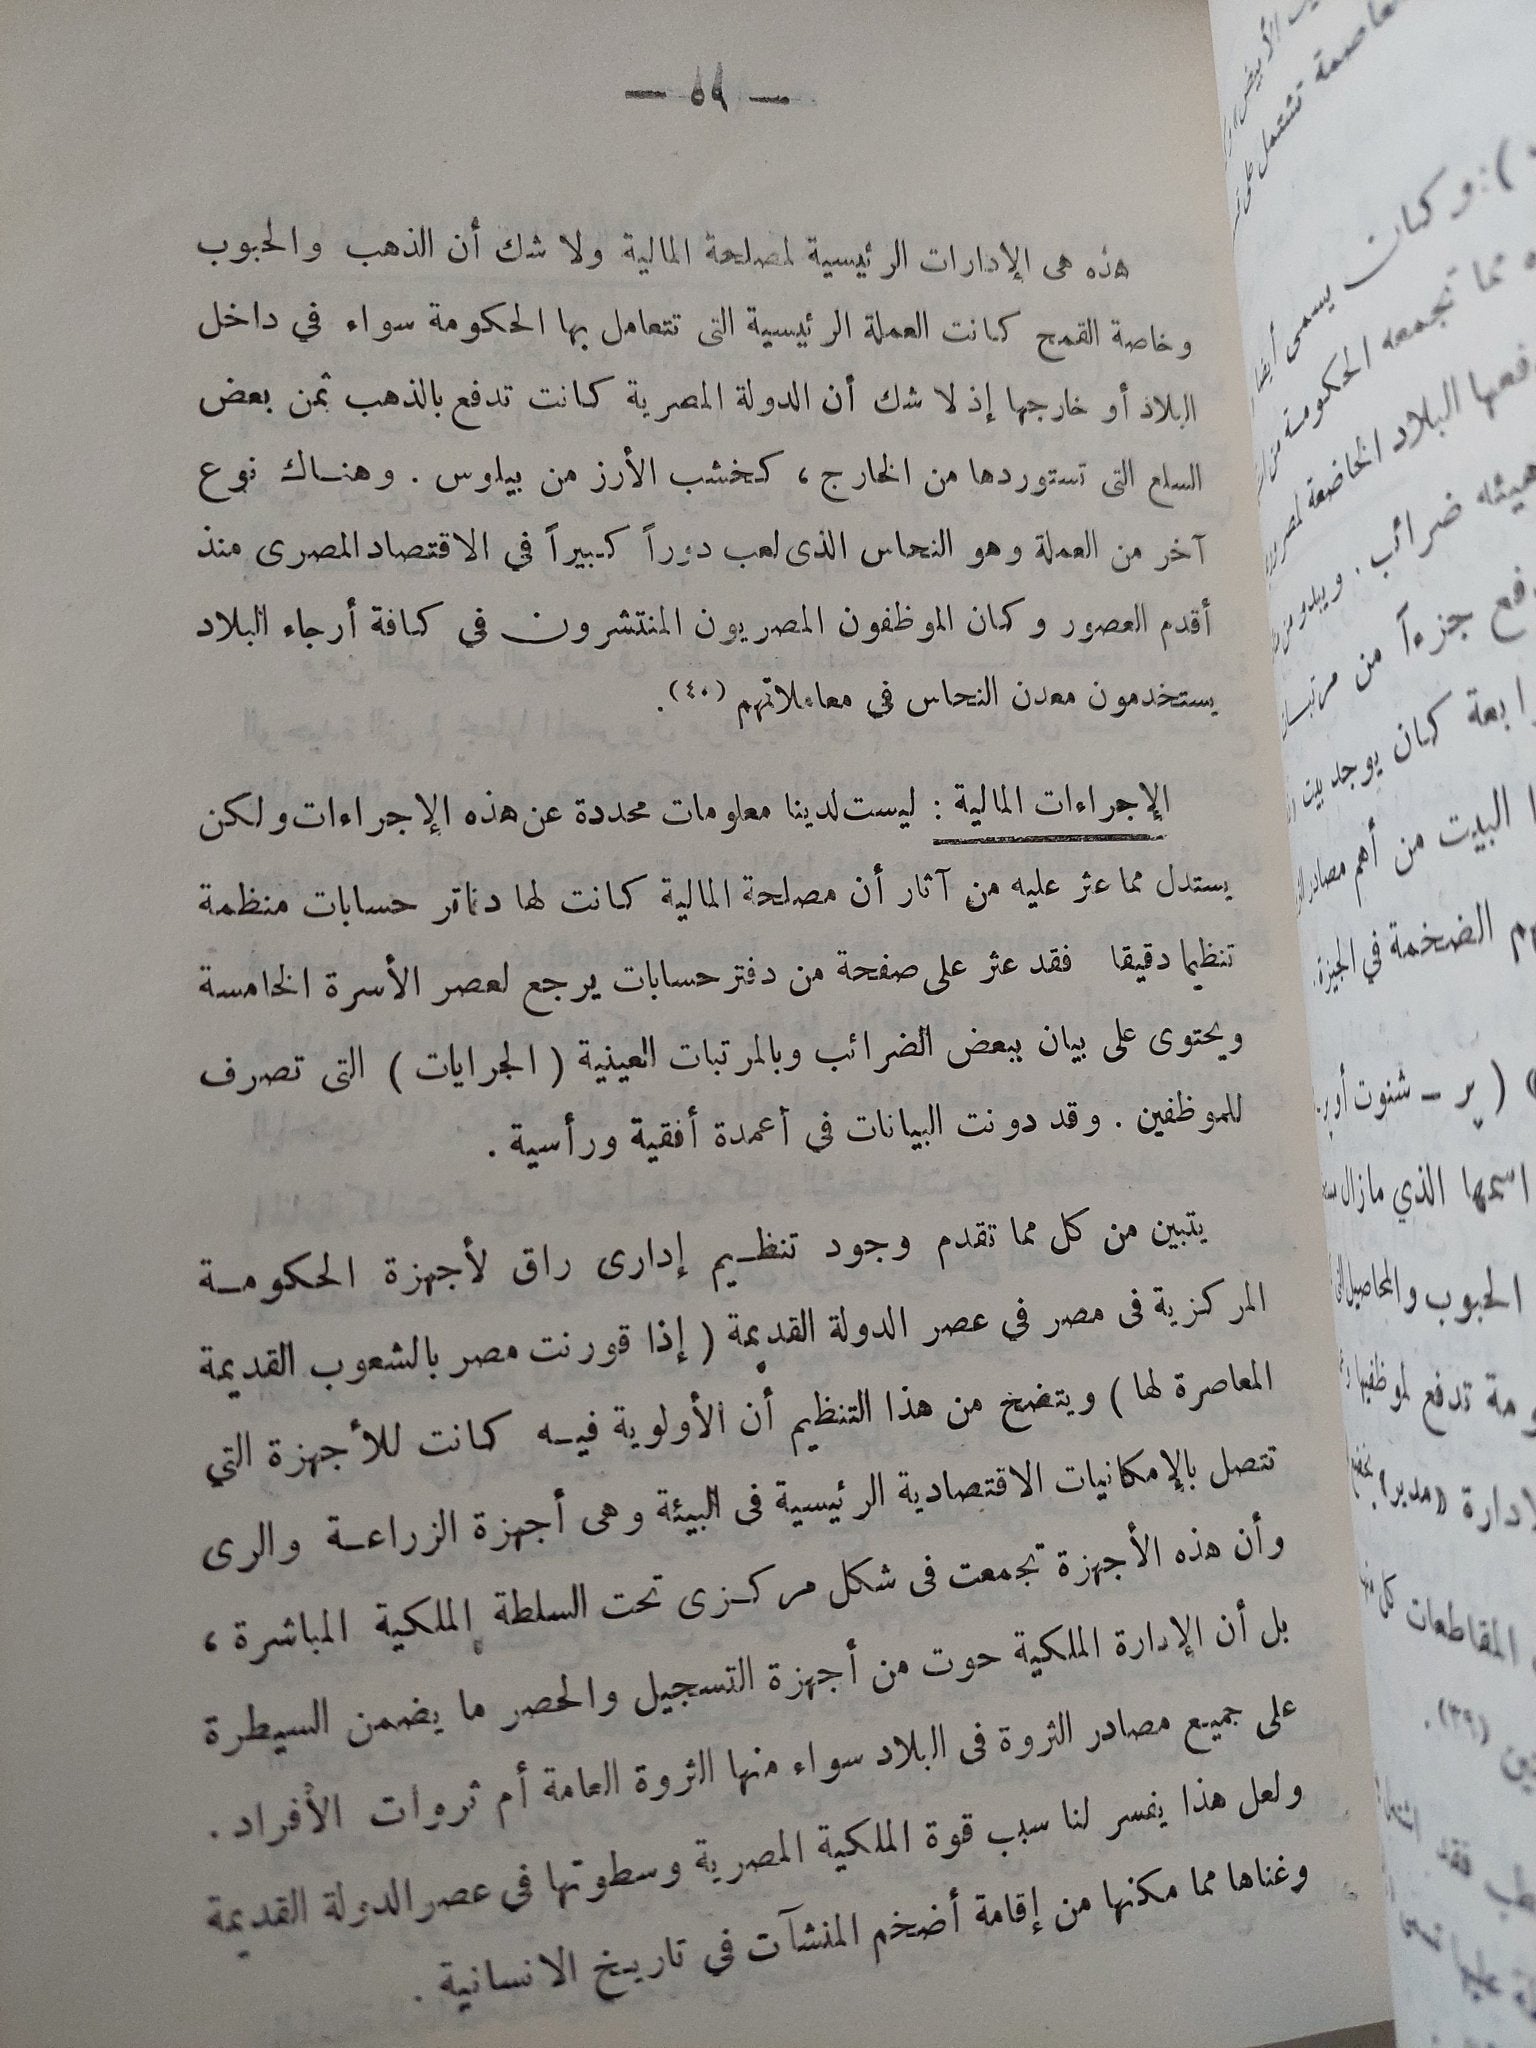 — ٥٩ —
هذه هى الإدارات الرئيسية لمصلحة المالية ولا شك أن الذهب والحبوب
وخاصة القمح كانت العملة الرئيسية التى تتعامل بها الحكومة سواء في داخل
البلاد أو خارجها إذ لا شك أن الدولة المصرية كانت تدفع بالذهب ثمن بعض
السلع التى تستوردها من الخارج ، كخشب الأرز من بيلوس . وهناك نوع
آخر من العملة وهو النحاس الذى لعب دوراً كبيراً في الاقتصاد المصرى منذ
أقدم العصور وكان الموظفون المصريون المنتشرون في كافة أرجاء البلاد
يستخدمون معدن النحاس في معاملاتهم (٤٠).
الإجراءات المالية : ليست لدينا معلومات محددة عن هذه الإجراءات ولكن
يستدل مما عثر عليه من آثار أن مصلحة المالية كانت لها دفاتر حسابات منظمة
تنظيما دقيقا فقد عثر على صفحة من دفتر حسابات يرجع لعصر الأسرة الخامسة
ويحتوى على بيان ببعض الضرائب وبالمرتبات العينية ( الجرايات ) التى تصرف
للموظفين . وقد دونت البيانات في أعمدة أفقية ورأسية .
يتبين من كل مما تقدم وجود تنظيم إدارى راق لأجهزة الحكومة
المركزية فى مصر في عصر الدولة القديمة ( إذا قورنت مصر بالشعوب القديمة
المعاصرة لها ) ويتضح من هذا التنظيم أن الأولوية فيه كانت للأجهزة التي
تتصل بالإمكانيات الاقتصادية الرئيسية فى البيئة وهى أجهزة الزراعة والرى
وأن هذه الأجهزة تجمعت فى شكل مركزى تحت السلطة الملكية المباشرة ،
بل أن الإدارة الملكية حوت من أجهزة التسجيل والحصر ما يضمن السيطرة
على جميع مصادر الثروة فى البلاد سواء منها الثروة العامة أم ثروات الأفراد .
ولعل هذا يفسر لنا سبب قوة الملكية المصرية وسطوتها فى عصر الدولة القديمة
وغناها مما مكنها من إقامة أضخم المنشآت في تاريخ الانسانية .
عاصمة تشتمل على
) : وكان يسمى أيضا
مما تجمعه الحكومة من
البلاد الخاضعة لمصر
هيئه ضرائب . ويبدو من
جزءاً من
كان يوجد بيت
البيت من أهم مصادر
الضخمة في الجيزة .
( پر – شنوت أو
اسمها الذي مازال
الحبوب والمحاصيل
تدفع لموظفيها
«مدير»
المقاطعات كل منها
(٣٩) .